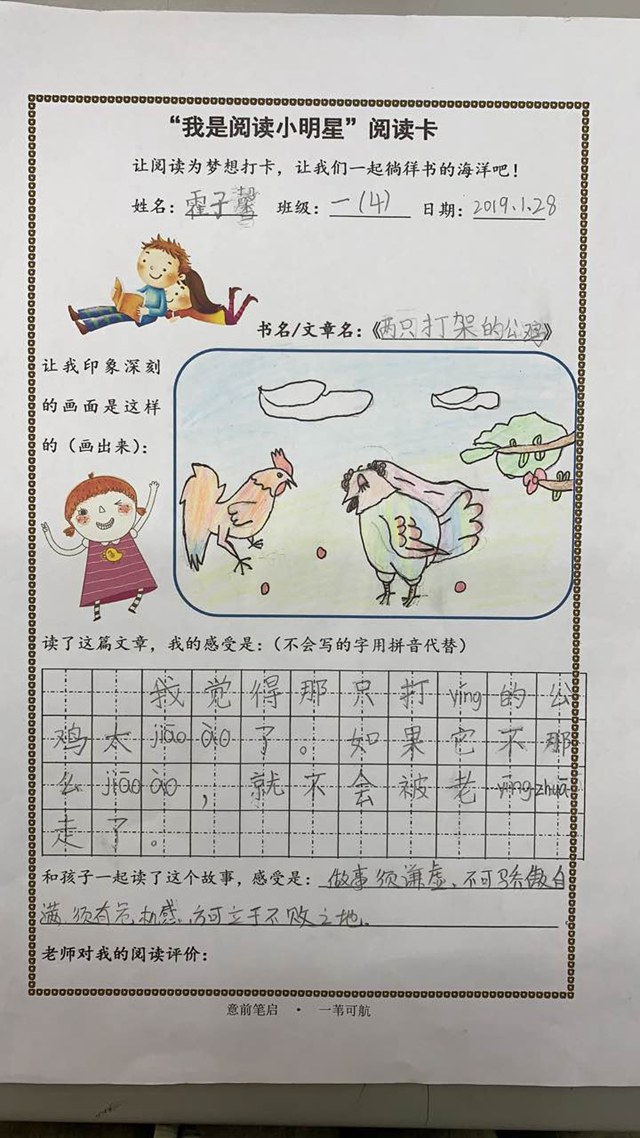 “我是阅读小明星”阅读卡
让阅读为梦想打卡，让我们一起徜徉书的海洋吧！
姓名：霍子馨 班级：一(4) 日期：2019.1.28
书名/文章名：《两只打架的公鸡》
让我印象深刻
的画面是这样
的（画出来）：
读了这篇文章，我的感受是：（不会写的字用拼音代替）
我觉得那只打yíng的公
鸡太jiāo ào了。如果它不那
么jiāo ào，就不会被老yīng zhuā
走了。
和孩子一起读了这个故事，感受是：做事须谦虚、不可骄傲自
满，须有危机感，方可立于不败之地。
老师对我的阅读评价：
意前笔启 · 一苇可航